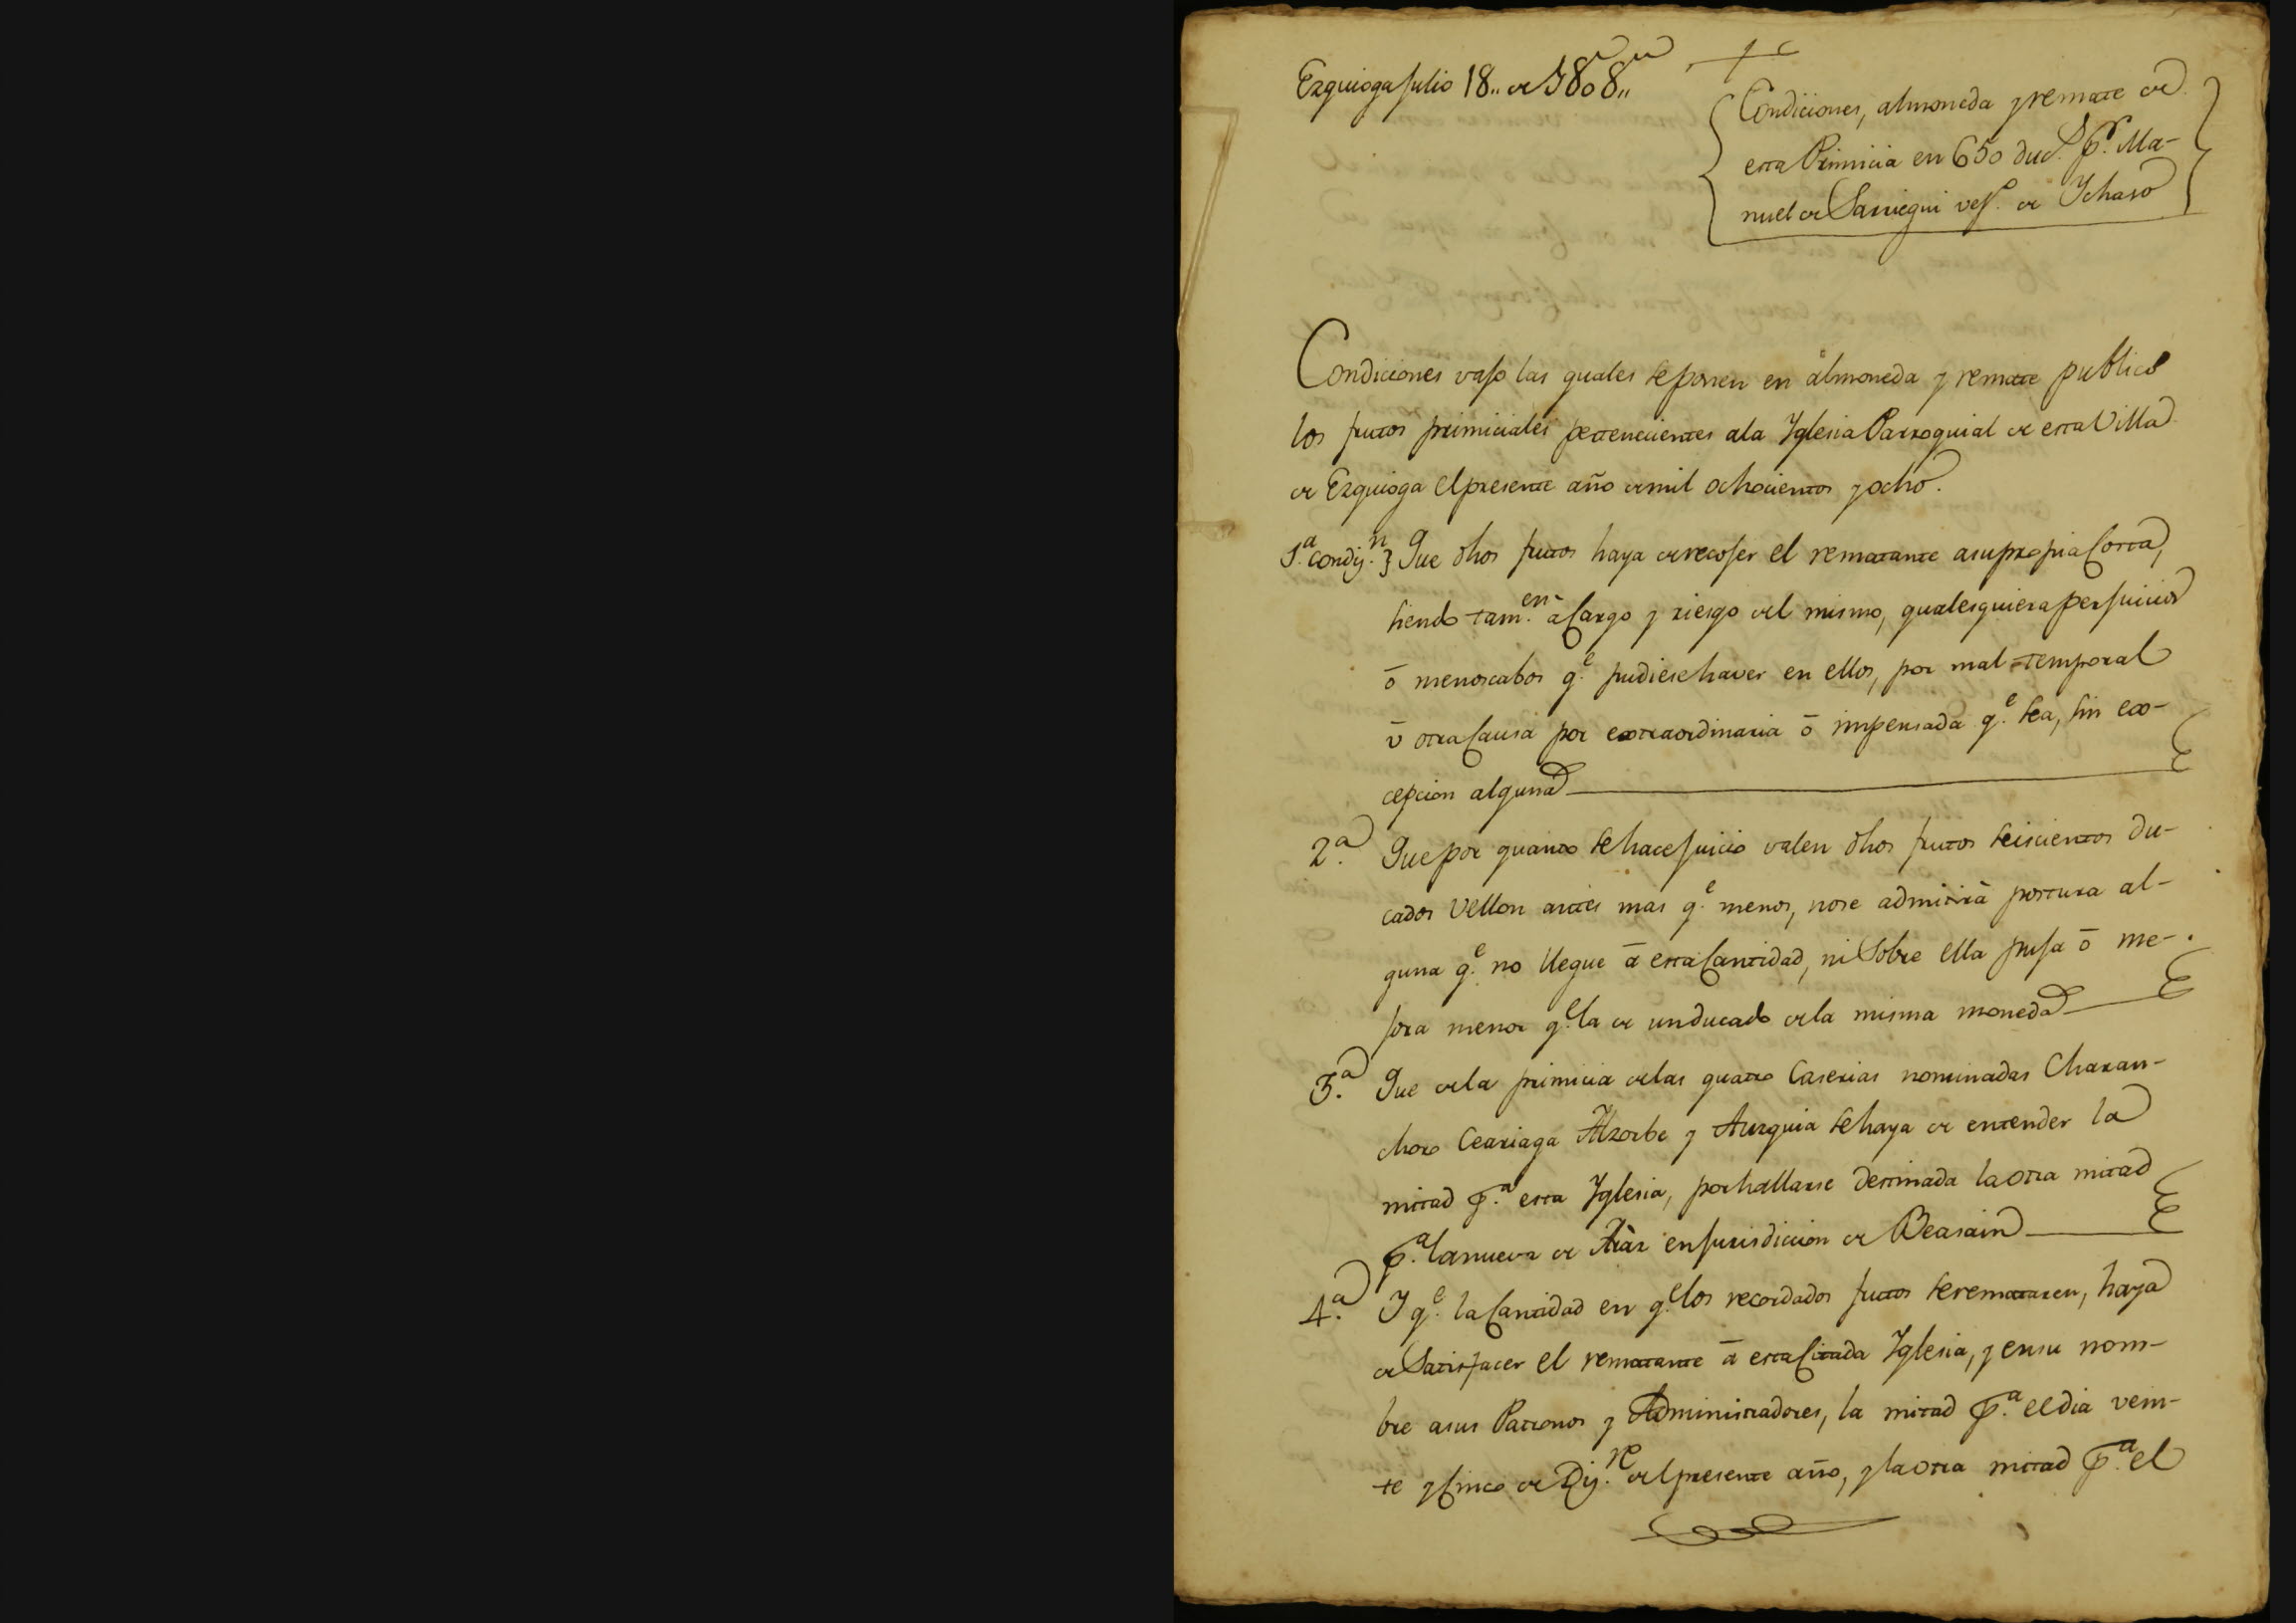 Ezquioga Julio 18,, de 1808,,
Condiciones, almoneda y remate de
esta Primicia en 650 duc.s p.r Ma-
nuel de Sarriegui vez.o de Ychaso
Condiciones vajo las quales se ponen en almoneda y remate publico
los frutos primiciales pertenecientes ala Yglesia Parroquial de esta Villa
de Ezquioga el presente año de mil ochocientos y ocho.
1.a condiz.n} Que dhos frutos haya de recojer el rematante a su propia Costa,
siendo tam.en à Cargo y riesgo del mismo, qualesquiera perjuicios
ō menoscabos q.e pudiese haver en ellos, por mal-temporal
v̄ otra Causa por extraordinaria ō impensada q.e sea, sin ex-
cepcion alguna
2.a Que por quanto se hace juicio valen dhos frutos seiscientos du-
cados Vellon antes mas q.e menos, no se admitirà postura al-
guna q.e no llegue ā esta Cantidad, ni Sobre ella puja ō me-
jora menor q.e la de un ducado de la misma moneda
3.a Que de la primicia de las quatro Caserias nominadas Charan-
choro Ceariaga Alzorbe y Auzquia se haya de entender la
mitad p.a esta Yglesia, por hallarse destinada la otra mitad
p.a la nueva de Ariàz en jurisdiccion de Beasain
4.a Y q.e la Cantidad en q.e los recordados frutos se remataren, haya
de Satisfacer el rematante ā esta Citada Yglesia, y en su nom-
bre a sus Patronos y Administradores, la mitad p.a el dia vein-
te y Cinco de Diz.re del presente año, y la otra mitad p.a el